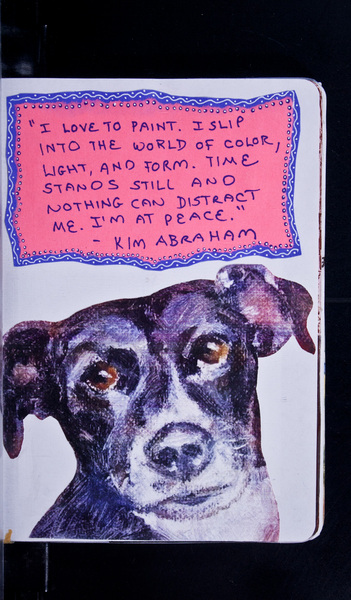 "I LOVE TO PAINT. I SLIP
INTO THE WORLD OF COLOR,
LIGHT, AND FORM. TIME
STANDS STILL AND
NOTHING CAN DISTRACT
ME. I'M AT PEACE."
- KIM ABRAHAM